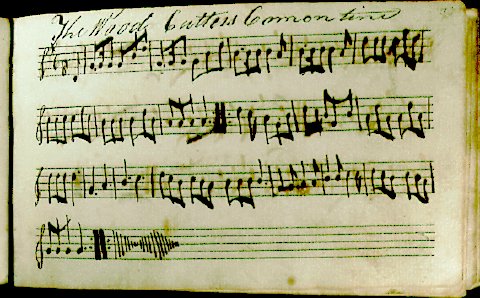 The Wood Cutters Common time